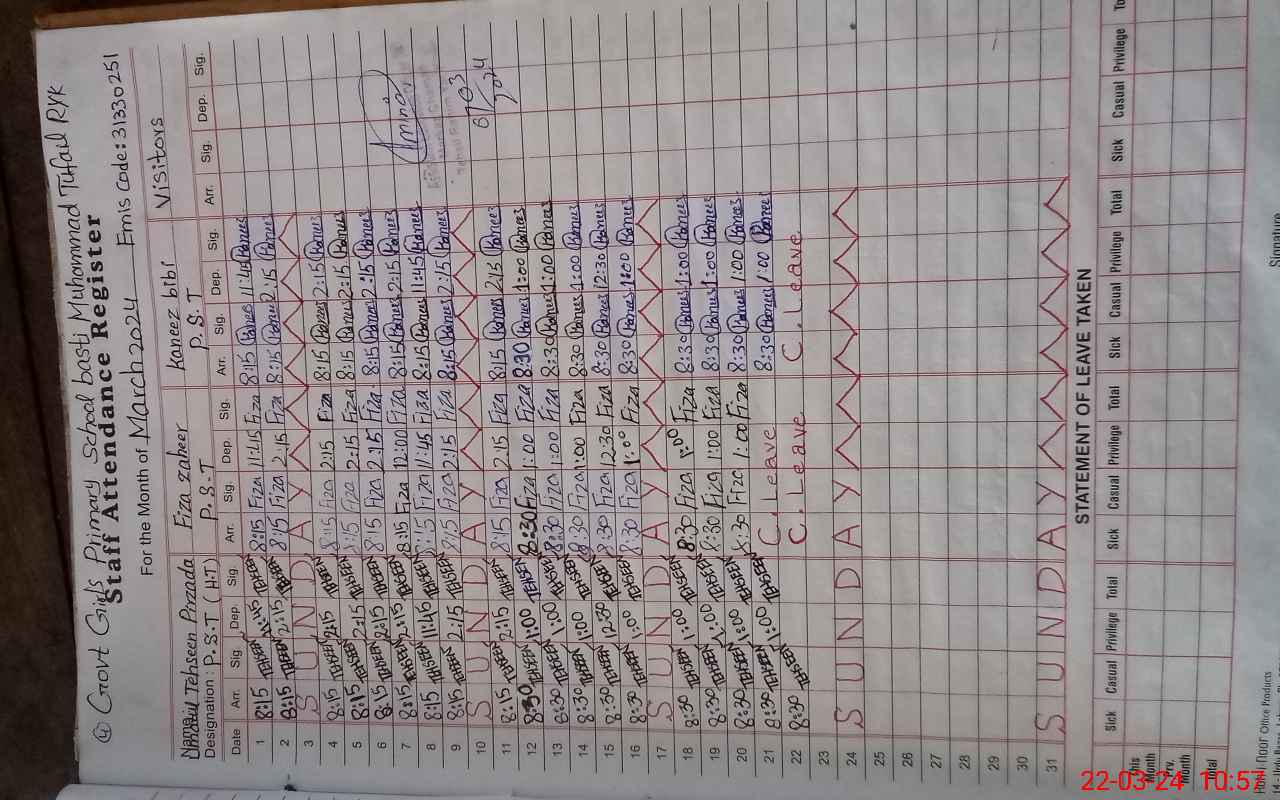 ④ Govt Girls Primary School basti Muhammad Tufail RYK
Staff Attendance Register
For the Month of March 2024 Emis Code: 31330251
Name: Tehseen Pirzada Fiza zaheer Kaneez bibi Visitors
Designation: P.S.T (H.T) P.S.T P.S.T
Date Arr. Sig. Dep. Sig. Arr. Sig. Dep. Sig. Arr. Sig. Dep. Sig. Arr. Sig. Dep. Sig.
1 8:15 TEHSEEN 11:45 TEHSEEN 8:15 Fiza 11:45 Fiza 8:15 Kaneez 11:45 Kaneez
2 8:15 TEHSEEN 2:15 TEHSEEN 8:15 Fiza 2:15 Fiza 8:15 Kaneez 2:15 Kaneez
3 S U N D A Y
4 8:15 TEHSEEN 2:15 TEHSEEN 8:15 Fiza 2:15 Fiza 8:15 Kaneez 2:15 Kaneez
5 8:15 TEHSEEN 2:15 TEHSEEN 8:15 Fiza 2:15 Fiza 8:15 Kaneez 2:15 Kaneez
6 8:15 TEHSEEN 2:15 TEHSEEN 8:15 Fiza 2:15 Fiza 8:15 Kaneez 2:15 Kaneez
7 8:15 TEHSEEN 2:15 TEHSEEN 8:15 Fiza 12:00 Fiza 8:15 Kaneez 2:15 Kaneez Amina
8 8:15 TEHSEEN 11:45 TEHSEEN 8:15 Fiza 11:45 Fiza 8:15 Kaneez 11:45 Kaneez
9 8:15 TEHSEEN 2:15 TEHSEEN 8:15 Fiza 2:15 Fiza 8:15 Kaneez 2:15 Kaneez
10 S U N D A Y
11 8:15 TEHSEEN 2:15 TEHSEEN 8:15 Fiza 2:15 Fiza 8:15 Kaneez 2:15 Kaneez
12 8:30 TEHSEEN 1:00 TEHSEEN 8:30 Fiza 1:00 Fiza 8:30 Kaneez 1:00 Kaneez
13 8:30 TEHSEEN 1:00 TEHSEEN 8:30 Fiza 1:00 Fiza 8:30 Kaneez 1:00 Kaneez
14 8:30 TEHSEEN 1:00 TEHSEEN 8:30 Fiza 1:00 Fiza 8:30 Kaneez 1:00 Kaneez
15 8:30 TEHSEEN 12:30 TEHSEEN 8:30 Fiza 12:30 Fiza 8:30 Kaneez 12:30 Kaneez
16 8:30 TEHSEEN 1:00 TEHSEEN 8:30 Fiza 1:00 Fiza 8:30 Kaneez 1:00 Kaneez
17 S U N D A Y
18 8:30 TEHSEEN 1:00 TEHSEEN 8:30 Fiza 1:00 Fiza 8:30 Kaneez 1:00 Kaneez
19 8:30 TEHSEEN 1:00 TEHSEEN 8:30 Fiza 1:00 Fiza 8:30 Kaneez 1:00 Kaneez
20 8:30 TEHSEEN 1:00 TEHSEEN 8:30 Fiza 1:00 Fiza 8:30 Kaneez 1:00 Kaneez
21 8:30 TEHSEEN 1:00 TEHSEEN C. Leave 8:30 Kaneez 1:00 Kaneez
22 8:30 TEHSEEN C. Leave C. Leave
23
24 S U N D A Y
25
26
27
28
29
30
31 S U N D A Y
STATEMENT OF LEAVE TAKEN
Sick Casual Privilege Total Sick Casual Privilege Total Sick Casual Privilege Total Sick Casual Privilege To
This Month
Prv. Month
Total
Signature
Office Products
22-03-24 10:57